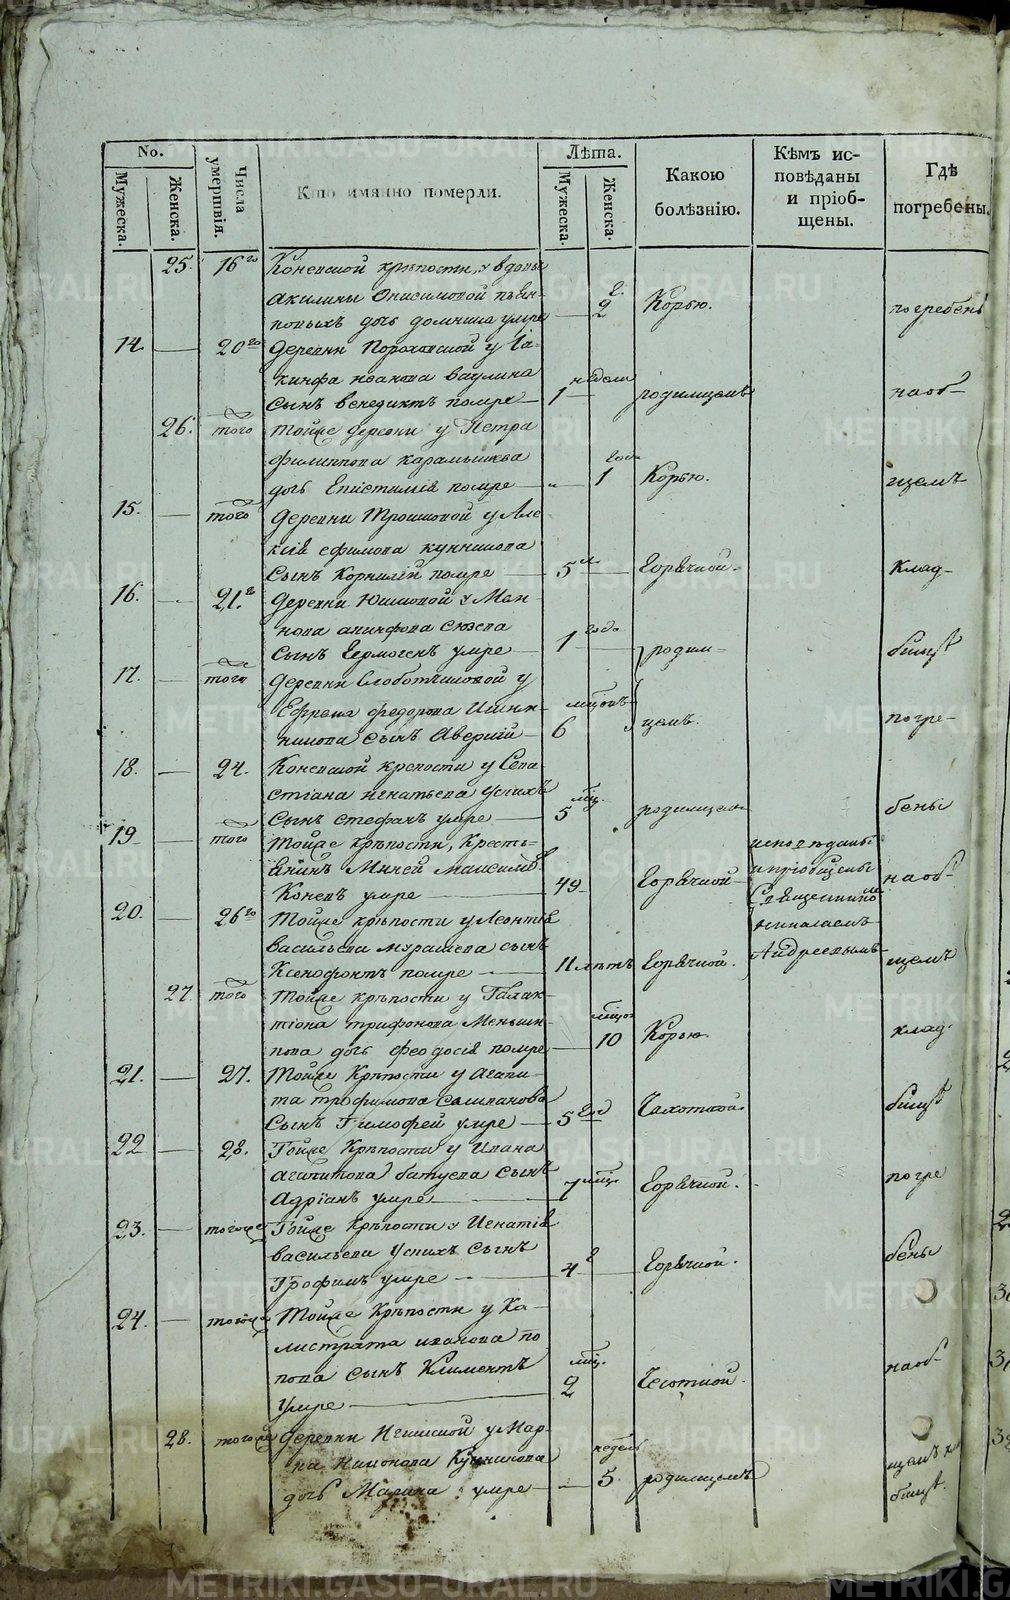 No.
Мужеска.
Женска.
Числа умертвія.
Кто имянно померли.
Лѣта.
Мужеска.
Женска.
Какою болѣзнію.
Кѣмъ исповѣданы и пріобщены.
Гдѣ погребены.
25. 16го Коневской крѣпости, у вдовы
акилины Онисимовой пьян-
ковыхъ дочь домника умре 2 Корью. погребены
14 20го деревни Пороховской у Іа-
кинфа иванова ваулина
сынъ венедиктъ помре 1 недели родимцемъ на об-
26. того тойже деревни у Петра
филиппова карамышева
дочь Епистимія помре 1 года Корью. щемъ
15. того деревни Трошковой у Але
ксія ефимова
сынъ Корнилій помре 5 Горячкой. Клад-
16. 21.го деревни Юшковой у
сынъ Ермогенъ умре 1 года родим- бищѣ
17. того деревни Слоботчиковой у
Ефрема федорова
сынъ Аверкій 6 мцовъ цемъ. погре-
18. 24. Коневской крепости у Сева-
стіана игнатьева успихъ
сынъ стефанъ умре 5 мц. родимцемъ бены
19 того тойже крѣпости, Кресть-
янинъ Миней максимовъ
Коневъ умре 49 Горячкой исповѣданы
и пріобщены
Священникомъ
Андреевымъ на об-
20. 26го тойже крѣпости у леонтія
васильева мурашева сынъ
Ксенофонтъ помре 11 лѣтъ Горячкой. щемъ
27. того тойже крѣпости у Галак-
тіона трифонова Меньши-
кова дочь феодосія помре 10 мцов Корью. клад-
21. 27. тойже Крѣпости у Агапи-
та трофимова
сынъ Тимофей умре 5 год Чахоткой бищѣ
22 28. Тойже Крѣпости у Ивана
агапитова батуева сынъ
Адріанъ умре 7 мцъ Горячкой. погре
23. тогоже Тойже крѣпости у Игнатія
васильева успихъ сынъ
Трофимъ умре 4 г Горячкой. бены
24. тогоже Тойже Крѣпости у Ка-
листрата иванова по
пова сынъ Климентъ
умре 2 мц. Чесоткой. на об-
28. тогоже деревни Ягишиной у Мар-
ка Никонова
дочь Марина умре 5 недель родимцемъ щемъ кла
бищѣ.
METRIKI.GASO-URAL.RU